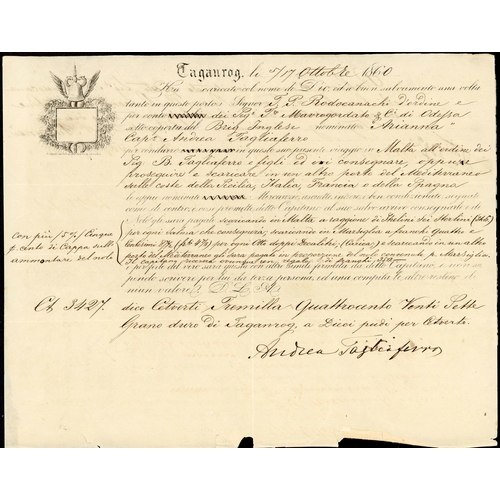 Taganrog, li 5/17 Ottobre 1860
Ha caricato col nome di Dio, ed a buon salvamento una volta
tanto in questo porto i Signori F. P. Rodocanachi d'ordine e
per conto dei Sigri Pe Mavrogordato & C. di Odessa
sotto coperta del Brig Inglese nominato Arianna
Capn Andrea Tagliaferro
per condurre in questo suo presente viaggio in Malta all'ordine dei
Sig B. Tagliaferro e figli ed ivi consegnare, oppure
proseguire e scaricare in un altro porto del Mediterraneo
sulle coste della Sicilia, Italia, Francia e della Spagna
le appiè nominate Mercanzie, asciutte, intere e ben condizionate, segnate
come di contro, e così promette detto Capitano al suo salvo arrivo consegnarle e di
Nolo gli sarà pagato scaricando in Malta a raggione di Scelini sei Sterlini
per ogni salma che consegnerà; scaricando in Marsiglia a franchi Quattro e
per ogni Otto doppi Decalitri, (Carica) e scaricando in un altro
porto del Mediterraneo gli sarà pagato in proporzione del nolo convenuto p. Marsiglia,
con più /5%/ Cinque
p. cento di Cappa sull'
ammontare del nolo
e per fede del vero sarà questa con altre simili firmata da detto Capitano, e non sa-
pendo scrivere per lui da terza persona, ed una compita le altre restino di
niun valore.
Ct. 3427. dico Cetverte Tremilla Quattrocento Venti Sette
Grano duro di Taganrog, a Dieci pudi per Cetverte.
Andrea Tagliaferro